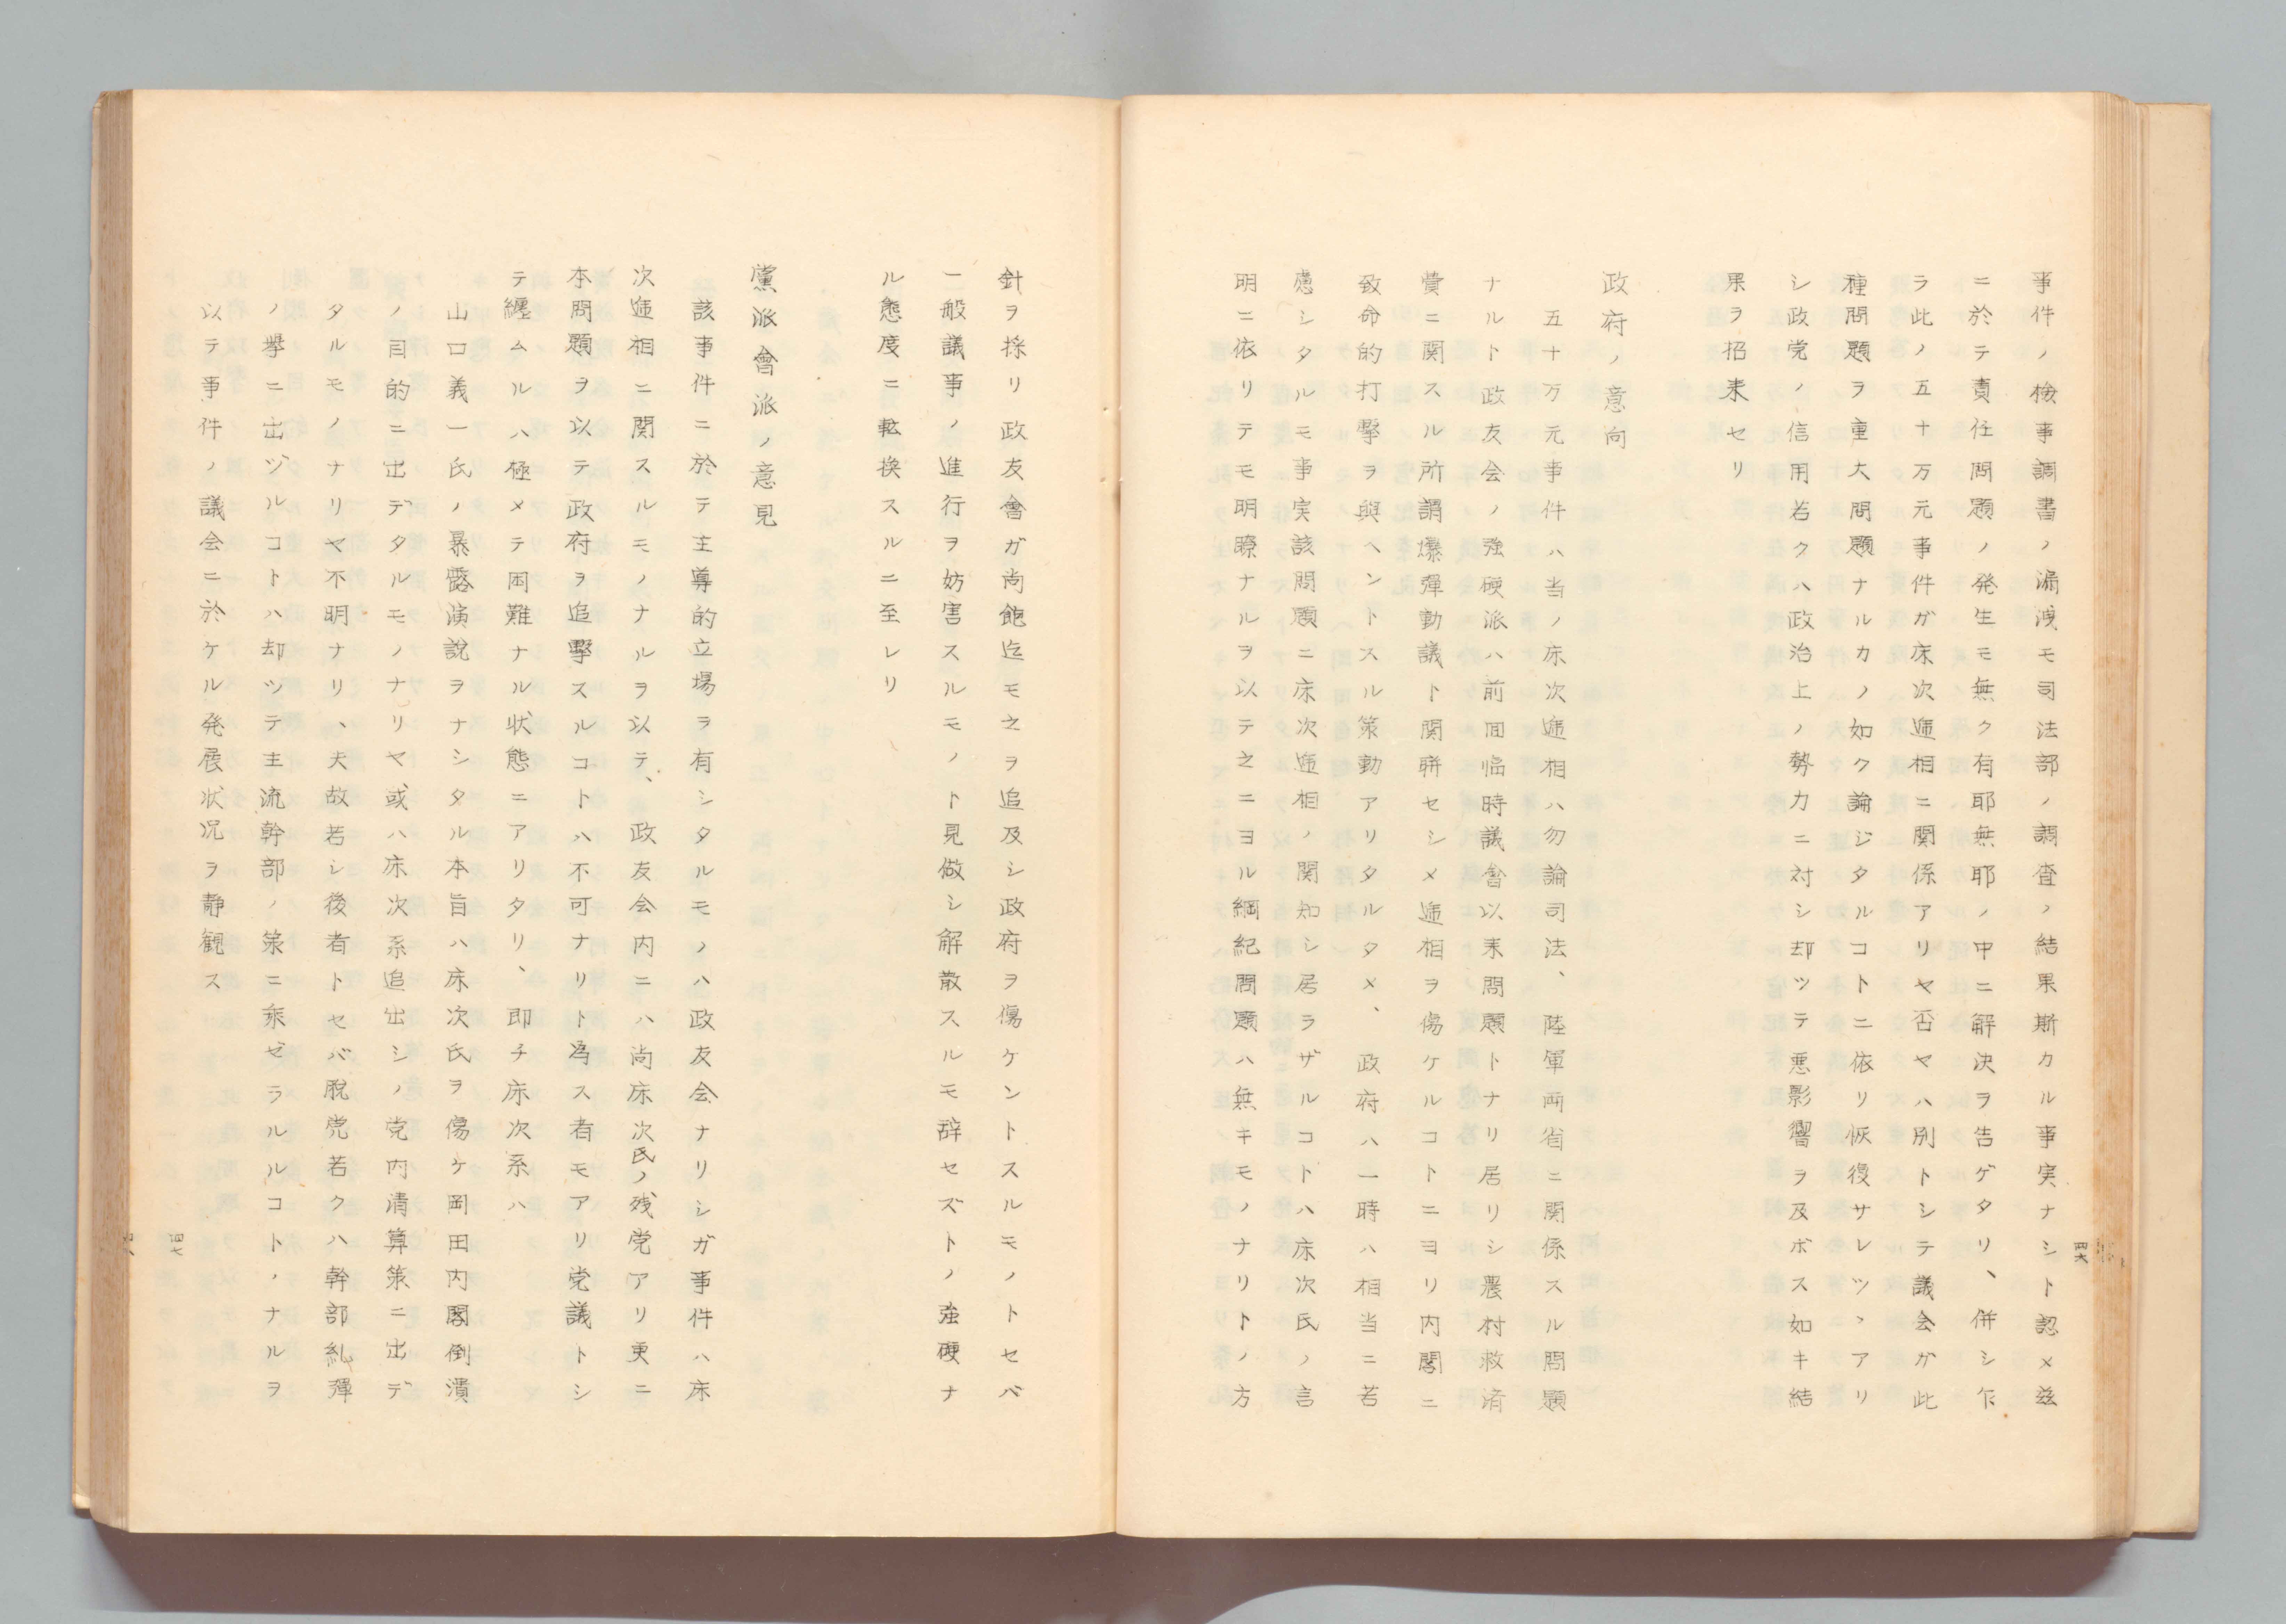 事件ノ檢事調書ノ漏洩モ司法部ノ調査ノ結果斯カル事実ナシト認メ玆
ニ於テ責任問題ノ発生モ無ク有耶無耶ノ中ニ解決ヲ告ゲタリ、併シ乍
ラ此ノ五十万元事件ガ床次逓相ニ関係アリヤ否ヤハ別トシテ議会ガ此
種問題ヲ重大問題ナルカノ如ク論ジタルコトニ依リ恢復サレツヽアリ
シ政党ノ信用若クハ政治上ノ勢力ニ対シ却ツテ悪影響ヲ及ボス如キ結
果ヲ招来セリ
政府ノ意向
五十万元事件ハ当ノ床次逓相ハ勿論司法、陸軍両省ニ関係スル問題
ナルト政友会ノ強硬派ハ前回臨時議會以来問題トナリ居リシ農村救済
費ニ関スル所謂爆彈動議ト関聯セシメ逓相ヲ傷ケルコトニヨリ内閣ニ
致命的打擊ヲ與ヘントスル策動アリタルタメ、政府ハ一時ハ相当ニ苦
慮シタルモ事実該問題ニ床次逓相ノ関知シ居ラザルコトハ床次氏ノ言
明ニ依リテモ明瞭ナルヲ以テ之ニヨル綱紀問題ハ無キモノナリトノ方
四六
針ヲ採リ政友會ガ尚飽迄モ之ヲ追及シ政府ヲ傷ケントスルモノトセバ
一般議事ノ進行ヲ妨害スルモノト見做シ解散スルモ辞セズトノ強硬ナ
ル態度ニ転換スルニ至レリ
黨派會派ノ意見
該事件ニ於テ主導的立場ヲ有シタルモノハ政友会ナリシガ事件ハ床
次逓相ニ関スルモノナルヲ以テ、政友会内ニハ尚床次氏ノ残党アリ更ニ
本問題ヲ以テ政府ヲ追擊スルコトハ不可ナリト為ス者モアリ党議トシ
テ纏ムルハ極メテ困難ナル状態ニアリタリ、即チ床次系ハ
山口義一氏ノ暴露演説ヲナシタル本旨ハ床次氏ヲ傷ケ岡田内閣倒潰
ノ目的ニ出デタルモノナリヤ、或ハ床次系追出シノ党内清算策ニ出デ
タルモノナリヤ不明ナリ、夫故若シ後者トセバ脱党若クハ幹部糺彈
ノ擧ニ出ヅルコトハ却ツテ主流幹部ノ策ニ乘ゼラルルコトノナルヲ
以テ事件ノ議会ニ於ケル発展状況ヲ靜観ス
四七